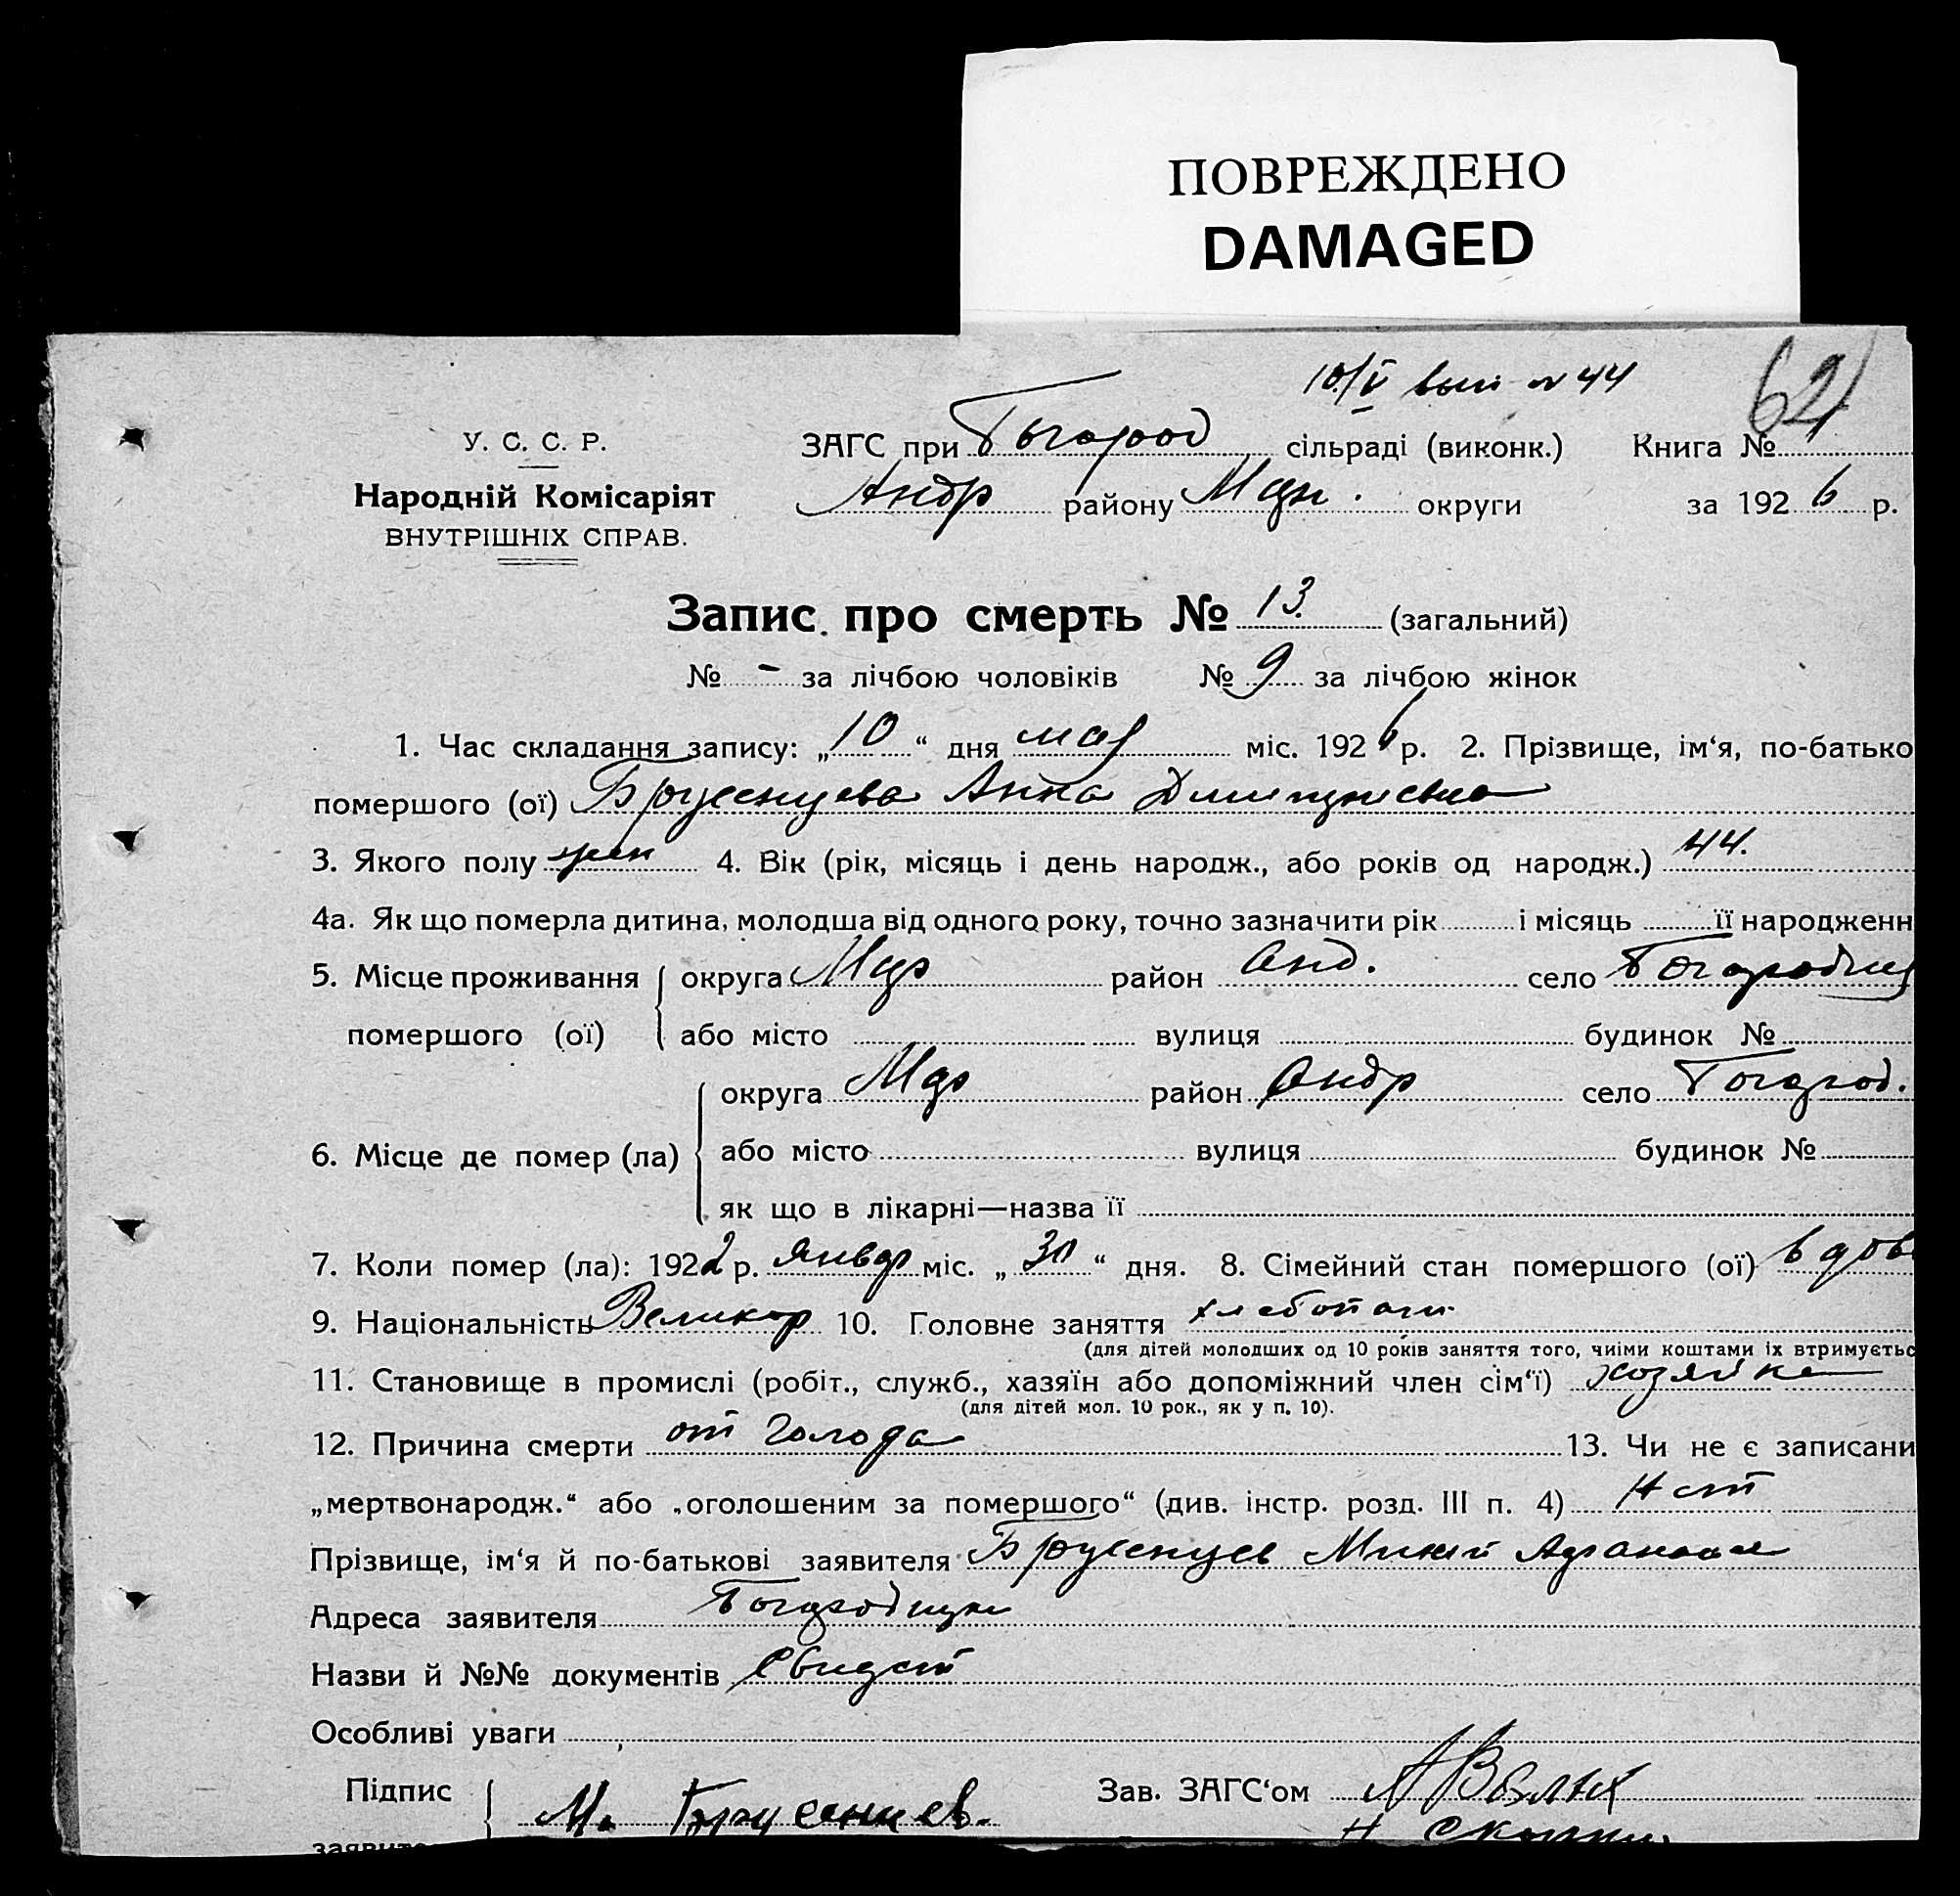 ПОВРЕЖДЕНО
DAMAGED
10/V вып № 44
62
У. С. С. Р.
ЗАГС при Богород сільраді (виконк.) Книга №
Народній Комісаріят
Андр району округи за 1926 р.
ВНУТРІШНІХ СПРАВ.
Запис про смерть № 13. (загальний)
№ - за лічбою чоловіків № 9 за лічбою жінок
1. Час складання запису: „10“ дня мая міс. 1926 р. 2. Прізвище, ім‘я, по-батько
помершого (ої) Брусенцева Анна Дмитриевна
3. Якого полу жен 4. Вік (рік, місяць і день народж., або років од народж.) 44.
4а. Як що померла дитина, молодша від одного року, точно зазначити рік і місяць її народженн
5. Місце проживання округа Мар район Анд. село
помершого (ої) або місто вулиця будинок №
округа Мар район Андр село Богород.
6. Місце де помер (ла) або місто вулиця будинок №
як що в лікарні—назва її
7. Коли помер (ла): 1922 р. январ міс. „30“ дня. 8. Сімейний стан помершого (ої) вдов
9. Національність Великор 10. Головне заняття хлебопаш
(для дітей молодших од 10 років заняття того, чиїми коштами їх втримуєтьс
11. Становище в промислі (робіт., служб., хазяїн або допоміжний член сім‘ї) хозяйка
(для дітей мол. 10 рок., як у п. 10).
12. Причина смерти от голода 13. Чи не є записани
„мертвонародж.“ або „оголошеним за помершого“ (див. інстр. розд. III п. 4) Нет
Прізвище, ім‘я й по-батькові заявителя Брусенцев
Адреса заявителя
Назви й №№ документів Свидет
Особливі уваги
Підпис М. Брусенцев. Зав. ЗАГС‘ом